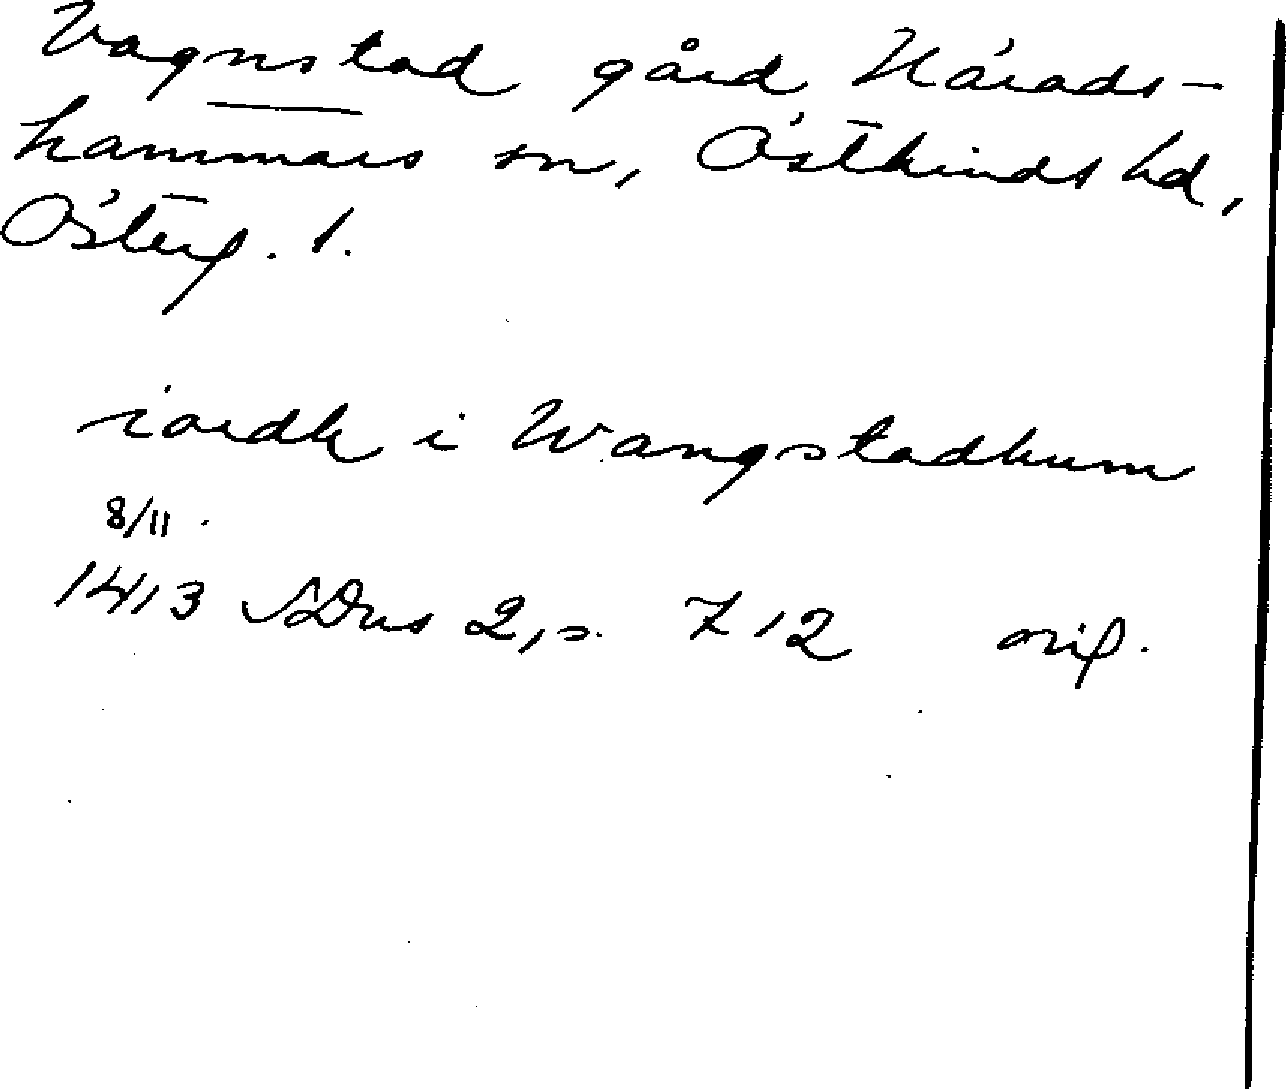 Vagnstad gård Härads-
hammars sn, Östkinds hd,
Österg. l.
iordh i Wangstadhum
8/11.
1413 SDns 2, s. 712 orig.